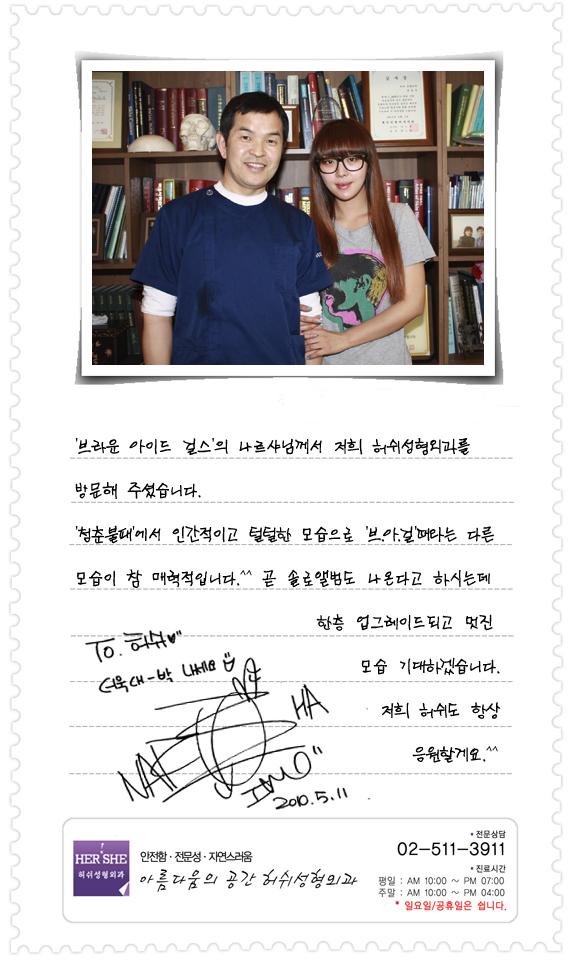 '브라운 아이드 걸스'의 나르샤님께서 저희 허쉬성형외과를
방문해 주셨습니다.
'청춘불패'에서 인간적이고 털털한 모습으로 '브.아.걸'때와는 다른
모습이 참 매력적입니다.^^ 곧 솔로앨범도 나온다고 하시는데
한층 업그레이드되고 멋진
모습 기대하겠습니다.
저희 허쉬도 항상
응원할게요.^^
To. 허쉬♥"
더욱 대-박 나세요
NAR
HA
2010.5.11
HER SHE
허쉬성형외과
안전함 · 전문성 · 자연스러움
아름다움의 공간 허쉬성형외과
• 전문상담
02-511-3911
• 진료시간
평일 : AM 10:00 ~ PM 07:00
주말 : AM 10:00 ~ PM 04:00
* 일요일/공휴일은 쉽니다.